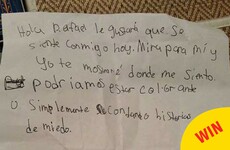 Hola, Rafael le gustará que se
siente conmigo hoy. Mira para mí y
yo te mostraré donde me siento.
podriamos estar colorante
o simplemente contando historias
de miedo.
WIN